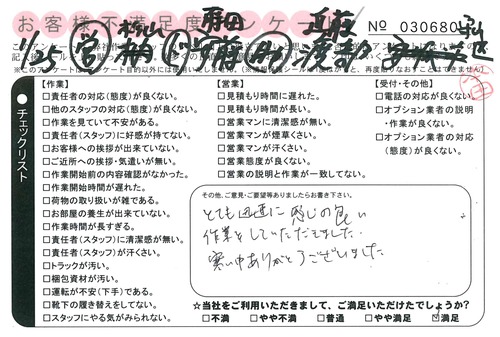 お客様不満足度アンケート
№ 030680
1/15
【作業】
□責任者の対応(態度)が良くない。
□他のスタッフの対応(態度)が良くない。
□作業を見ていて不安がある。
□責任者(スタッフ)に好感が持てない。
□お客様への挨拶が出来ていない。
□ご近所への挨拶・気遣いが無い。
□作業開始前の内容確認がなかった。
□作業開始時間が遅れた。
□荷物の取り扱いが雑である。
□お部屋の養生が出来ていない。
□作業時間が長すぎる。
□責任者(スタッフ)に清潔感が無い。
□責任者(スタッフ)が汗くさい。
□トラックが汚い。
□梱包資材が汚い。
□運転が不安(下手)である。
□靴下の履き替えをしてない。
□スタッフにやる気がみられない。
【営業】
□見積もり時間に遅れた。
□見積もり時間が長い。
□営業マンに清潔感が無い。
□営業マンが煙草くさい。
□営業マンが汗くさい。
□営業態度が良くない。
□営業の説明と作業が一致してない。
【受付・その他】
□電話の対応が良くない。
□オプション業者の説明
・作業が良くない。
□オプション業者の対応
(態度)が良くない。
チェックリスト
その他、ご意見・ご要望等ありましたらお書き下さい。
とても迅速に感じの良い
作業をしていただきました。
寒い中ありがとうございました。
☆当社をご利用いただきまして、ご満足いただけたでしょうか?
□不満 □やや不満 □普通 □やや満足 ☑満足